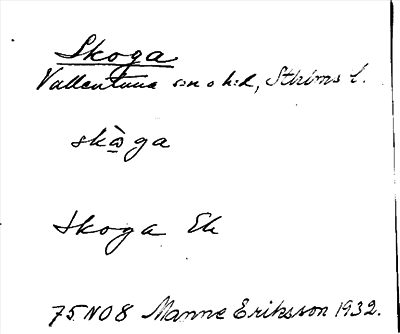 Skoga
Vallentuna sn o hd, Sthlms l.
skò̱ga
Skoga Ek
75 NO8 Manne Eriksson 1932.